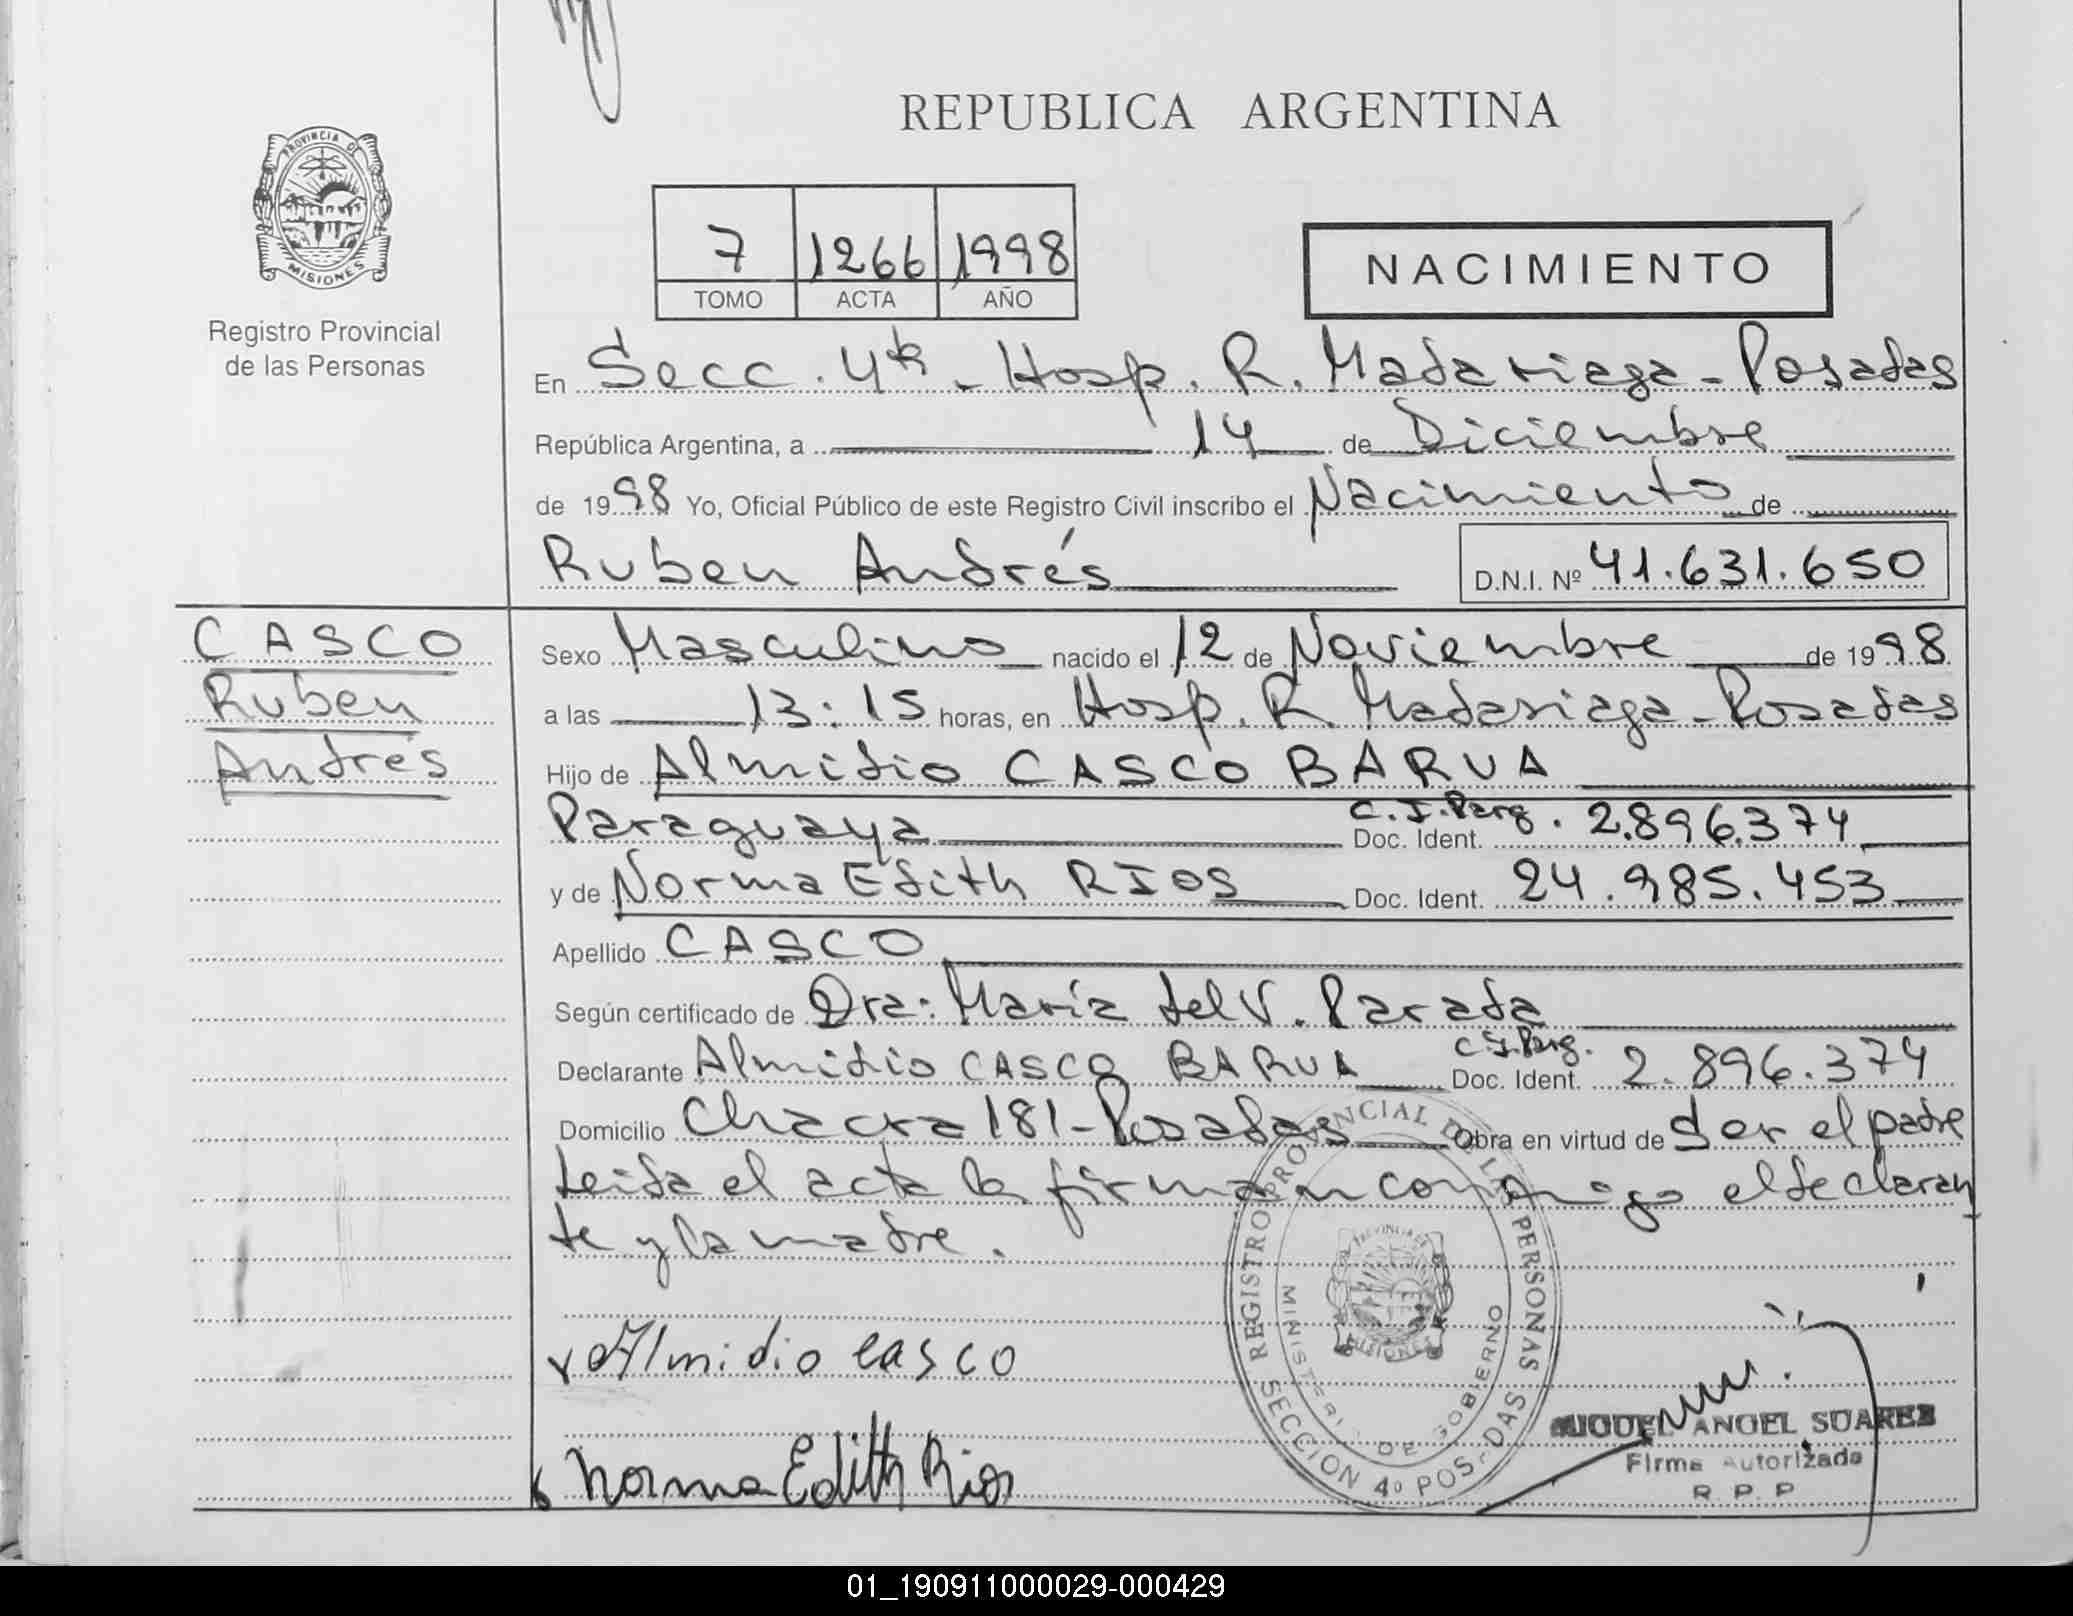 REPUBLICA ARGENTINA
PROVINCIA DE
MISIONES
Registro Provincial
de las Personas
7 1266 1998
TOMO ACTA AÑO
NACIMIENTO
En Secc. 4ta - Hosp. R. Madariaga - Posadas
República Argentina, a 14 de Diciembre
de 1998 Yo, Oficial Público de este Registro Civil inscribo el Nacimiento de
Ruben Andrés D.N.I. Nº 41.631.650
CASCO
Ruben
Andrés
Sexo Masculino nacido el 12 de Noviembre de 1998
a las 13:15 horas, en Hosp. R. Madariaga - Posadas
Hijo de Almidio CASCO BARUA
Paraguaya C.I. Parg. Doc. Ident. 2.896.374
y de Norma Edith RIOS Doc. Ident. 24.985.453
Apellido CASCO
Según certificado de Dra: María del V. Parada
Declarante Almidio CASCO BARUA C.I. Parg. Doc. Ident. 2.896.374
Domicilio Chacra 181 - Posadas Obra en virtud de Ser el padre
Leida el acta la firman conmigo el declaran
te y la madre.
Almidio casco
Norma Edith Rios
REGISTRO PROVINCIAL DE LAS PERSONAS
SECCION 4º POSADAS
MINISTERIO DE GOBIERNO
MISIONES
MIGUEL ANGEL SUAREZ
Firma Autorizada
R. P. P
01_190911000029-000429